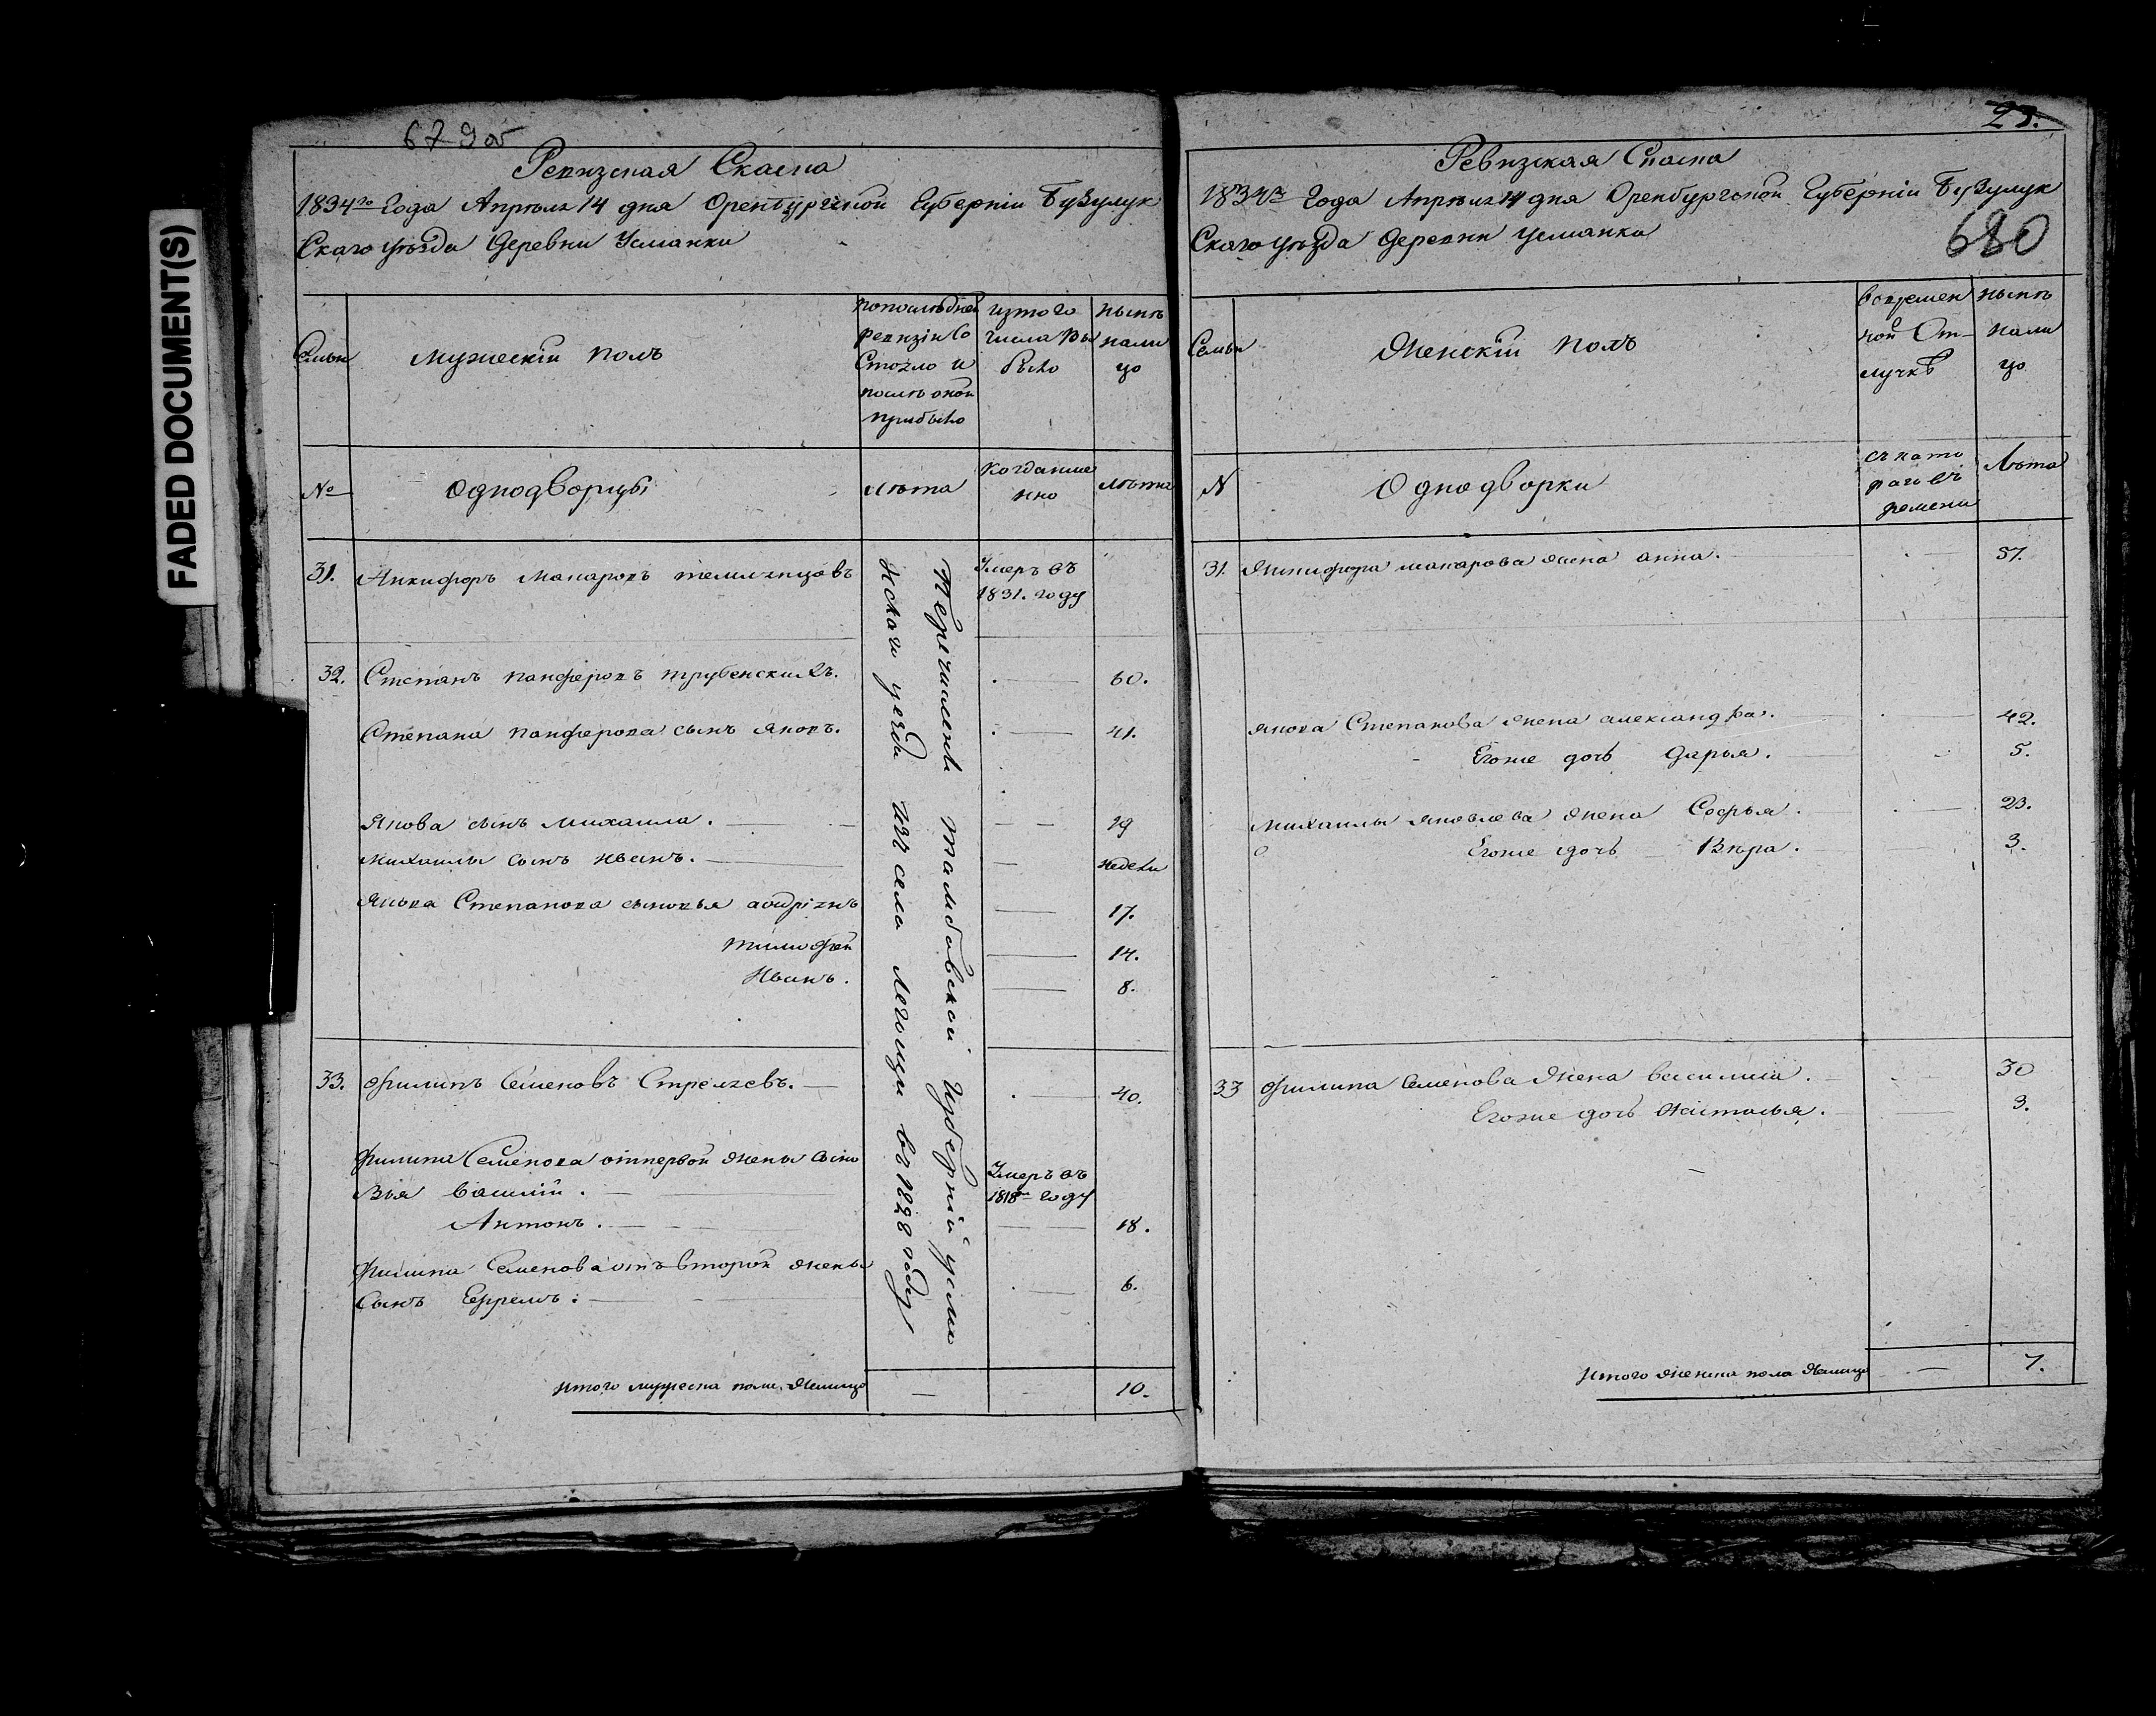 FADED DOCUMENT(S)
679об
Ревизская Скаска
1834го Года Апреля 14 дня Оренбургской Губернiи Бузулук
Скаго уѣзда Деревни Усманки
Семьи
мужескiй полъ
по последней
ревизiи со
стояло и
послѣ оной
прибыло
из того
числа вы
было
нынѣ
нали
цо
№
Однодворцы
лѣта
когда име
нно
лѣта
31. Анкифоръ Макаровъ
Умеръ въ
1831. году
32. Степанъ панферовъ трубенскихъ. — 60.
Степана панферова сынъ яковъ. — 41.
Якова сынъ михаила. — 29
михаилы сынъ иванъ. — недели
Якова Степанова сыновья — 17.
тимофей — 14.
Иванъ. — 8.
33. Филипъ Семеновъ Стрелзевъ. — 40.
Филипа Семенова отпервой жены сыно
вья василiй. —
Умеръ въ
1818м году
Антонъ. — 18.
Филипа Семенова отъ второй жены
сынъ Ефремъ. — 6.
Перечислены тамбовской губернiи усма
нскаго уезда изъ села въ 1828 году
итого мужеска пола налицо — 10.
23.
Ревизская Скаска
1834го Года Апрѣля 14 дня Оренбургской Губернiи Бузулук
Скаго уѣзда Деревни усманки
680
Семьи
Женскiй полъ
во времен
ной От-
лучкѣ
нынѣ
нали
цо
N
Однодворки
съ кото
раго въ
ремени
Лѣта
31. Анкифора макарова жена анна. — 57.
якова Степанова жена александра. — 42.
Егоже дочь Дарья. — 5.
михаилы яковлева жена Софья. — 23.
Егоже дочь Вѣра. — 3.
33 Филипа Семенова жена василиса. — 30
Егоже дочь Наталья. — 3.
итого женска пола налицо — 7.